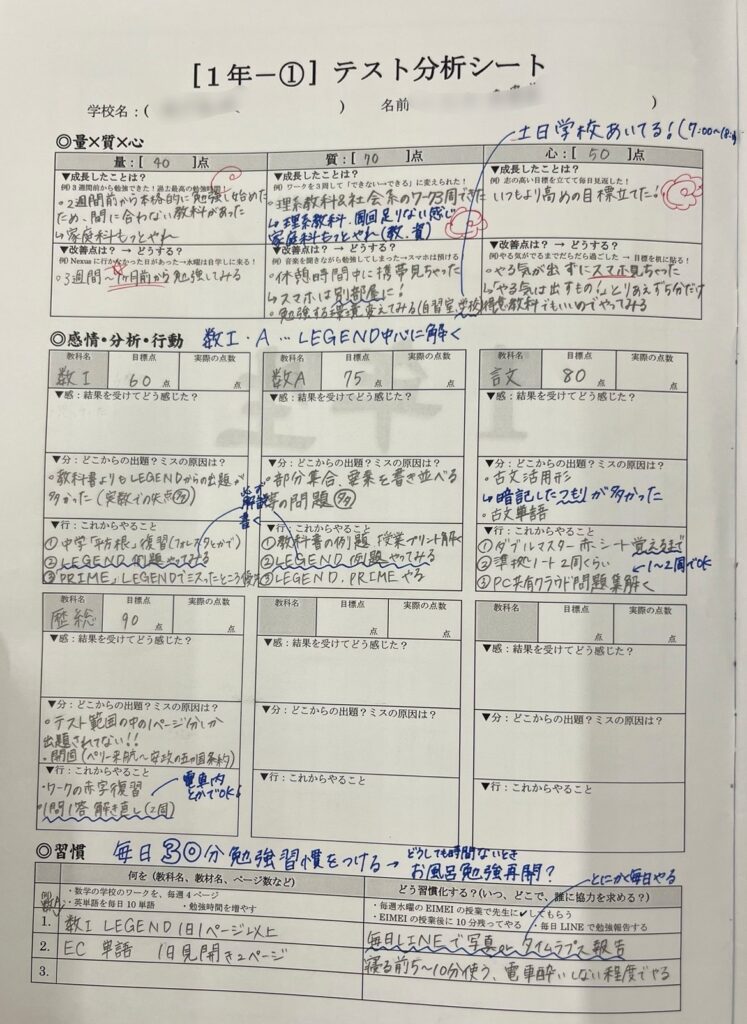 [1年－①] テスト分析シート
学校名：( ) 名前 )
土日学校あいてる！(7:00～18:
◎量×質×心
量：[ 40 ]点
▼成長したことは？
例) 3週間前から勉強できた！過去最高の勉強時間
・2週間前から本格的に勉強し始めた
ため、間に合わない教科があった
↳家庭科もっとやれ
▼改善点は？ → どうする？
例) Nexusに行かなかった日があった→水曜は自学しに来る！
・3週間～1ヶ月前から勉強してみる
質：[ 70 ]点
▼成長したことは？
例) ワークを3周して「できない→できる」に変えられた！
・理系教科&社会系のワーク3周できた
↳理系教科、周回足りない感じ
家庭科もっとやれ(教、資)
▼改善点は？ → どうする？
例) 音楽を聞きながら勉強してしまった→スマホは預ける
・休憩時間中に携帯見ちゃった
↳スマホは別部屋に！
・勉強する環境変えてみる(自習室、学校)
心：[ 50 ]点
▼成長したことは？
例) 志の高い目標を立てて毎日見返した！
いつもより高めの目標立てた！
▼改善点は？ → どうする？
例) やる気がでるまでだらだら過ごした → 目標を机に貼る！
・やる気が出ずにスマホ見ちゃった
↳「やる気は出すもの！」とりあえず5分だけ
得意教科でもいいのでやってみる
◎感情・分析・行動 数I・A…LEGEND中心に解く
教科名 目標点 実際の点数
数I 60 点 点
▼感：結果を受けてどう感じた？
▼分：どこからの出題？ミスの原因は？
・教科書よりもLEGENDからの出題が
多かった(実数での失点多)
▼行：これからやること
①中学「平方根」復習(フォレスタとかで)
②LEGEND例題やってみる
③PRIME、LEGENDでミスったところ復習
必ず
解説
書く
教科名 目標点 実際の点数
数A 75 点 点
▼感：結果を受けてどう感じた？
▼分：どこからの出題？ミスの原因は？
・部分集合、要素を書き並べる
等の問題多
▼行：これからやること
①教科書の例題、授業プリント解く
②LEGEND例題やってみる
③LEGEND、PRIMEやる
教科名 目標点 実際の点数
言文 80 点 点
▼感：結果を受けてどう感じた？
▼分：どこからの出題？ミスの原因は？
・古文活用形
↳暗記したつもりが多かった
・古文単語
▼行：これからやること
①ダブルマスター赤シート覚えるまで
②準拠ノート2周ぐらい
←1～2周でOK
③PC共有クラウド問題集解く
教科名 目標点 実際の点数
歴総 90 点 点
▼感：結果を受けてどう感じた？
▼分：どこからの出題？ミスの原因は？
・テスト範囲の中の1ページ分しか
出題されてない！！
・開国(ペリー来航～安政の五カ国条約)
▼行：これからやること
・ワークの赤字復習
・1問1答解き直し(2周)
電車内
とかでOK！
教科名 目標点 実際の点数
点 点
▼感：結果を受けてどう感じた？
▼分：どこからの出題？ミスの原因は？
▼行：これからやること
教科名 目標点 実際の点数
点 点
▼感：結果を受けてどう感じた？
▼分：どこからの出題？ミスの原因は？
▼行：これからやること
◎習慣 毎日30分勉強習慣をつける→
どうしても時間ないとき
お風呂勉強再開？
とにかく毎日やる
何を（教科名、教材名、ページ数など）
どう習慣化する？（いつ、どこで、誰に協力を求める？）
例) ・数学の学校のワークを、毎週4ページ
・英単語を毎日10単語 ・勉強時間を増やす
・毎週水曜のEIMEIの授業で先生に✓してもらう
・EIMEIの授業後に10分残ってやる ・毎日LINEで勉強報告する
1. 数I LEGEND 1日1ページ以上
毎日LINEで写真orタイムラプス報告
2. EC 単語 1日見開き2ページ
寝る前5～10分使う、電車酔いしない程度でやる
3.